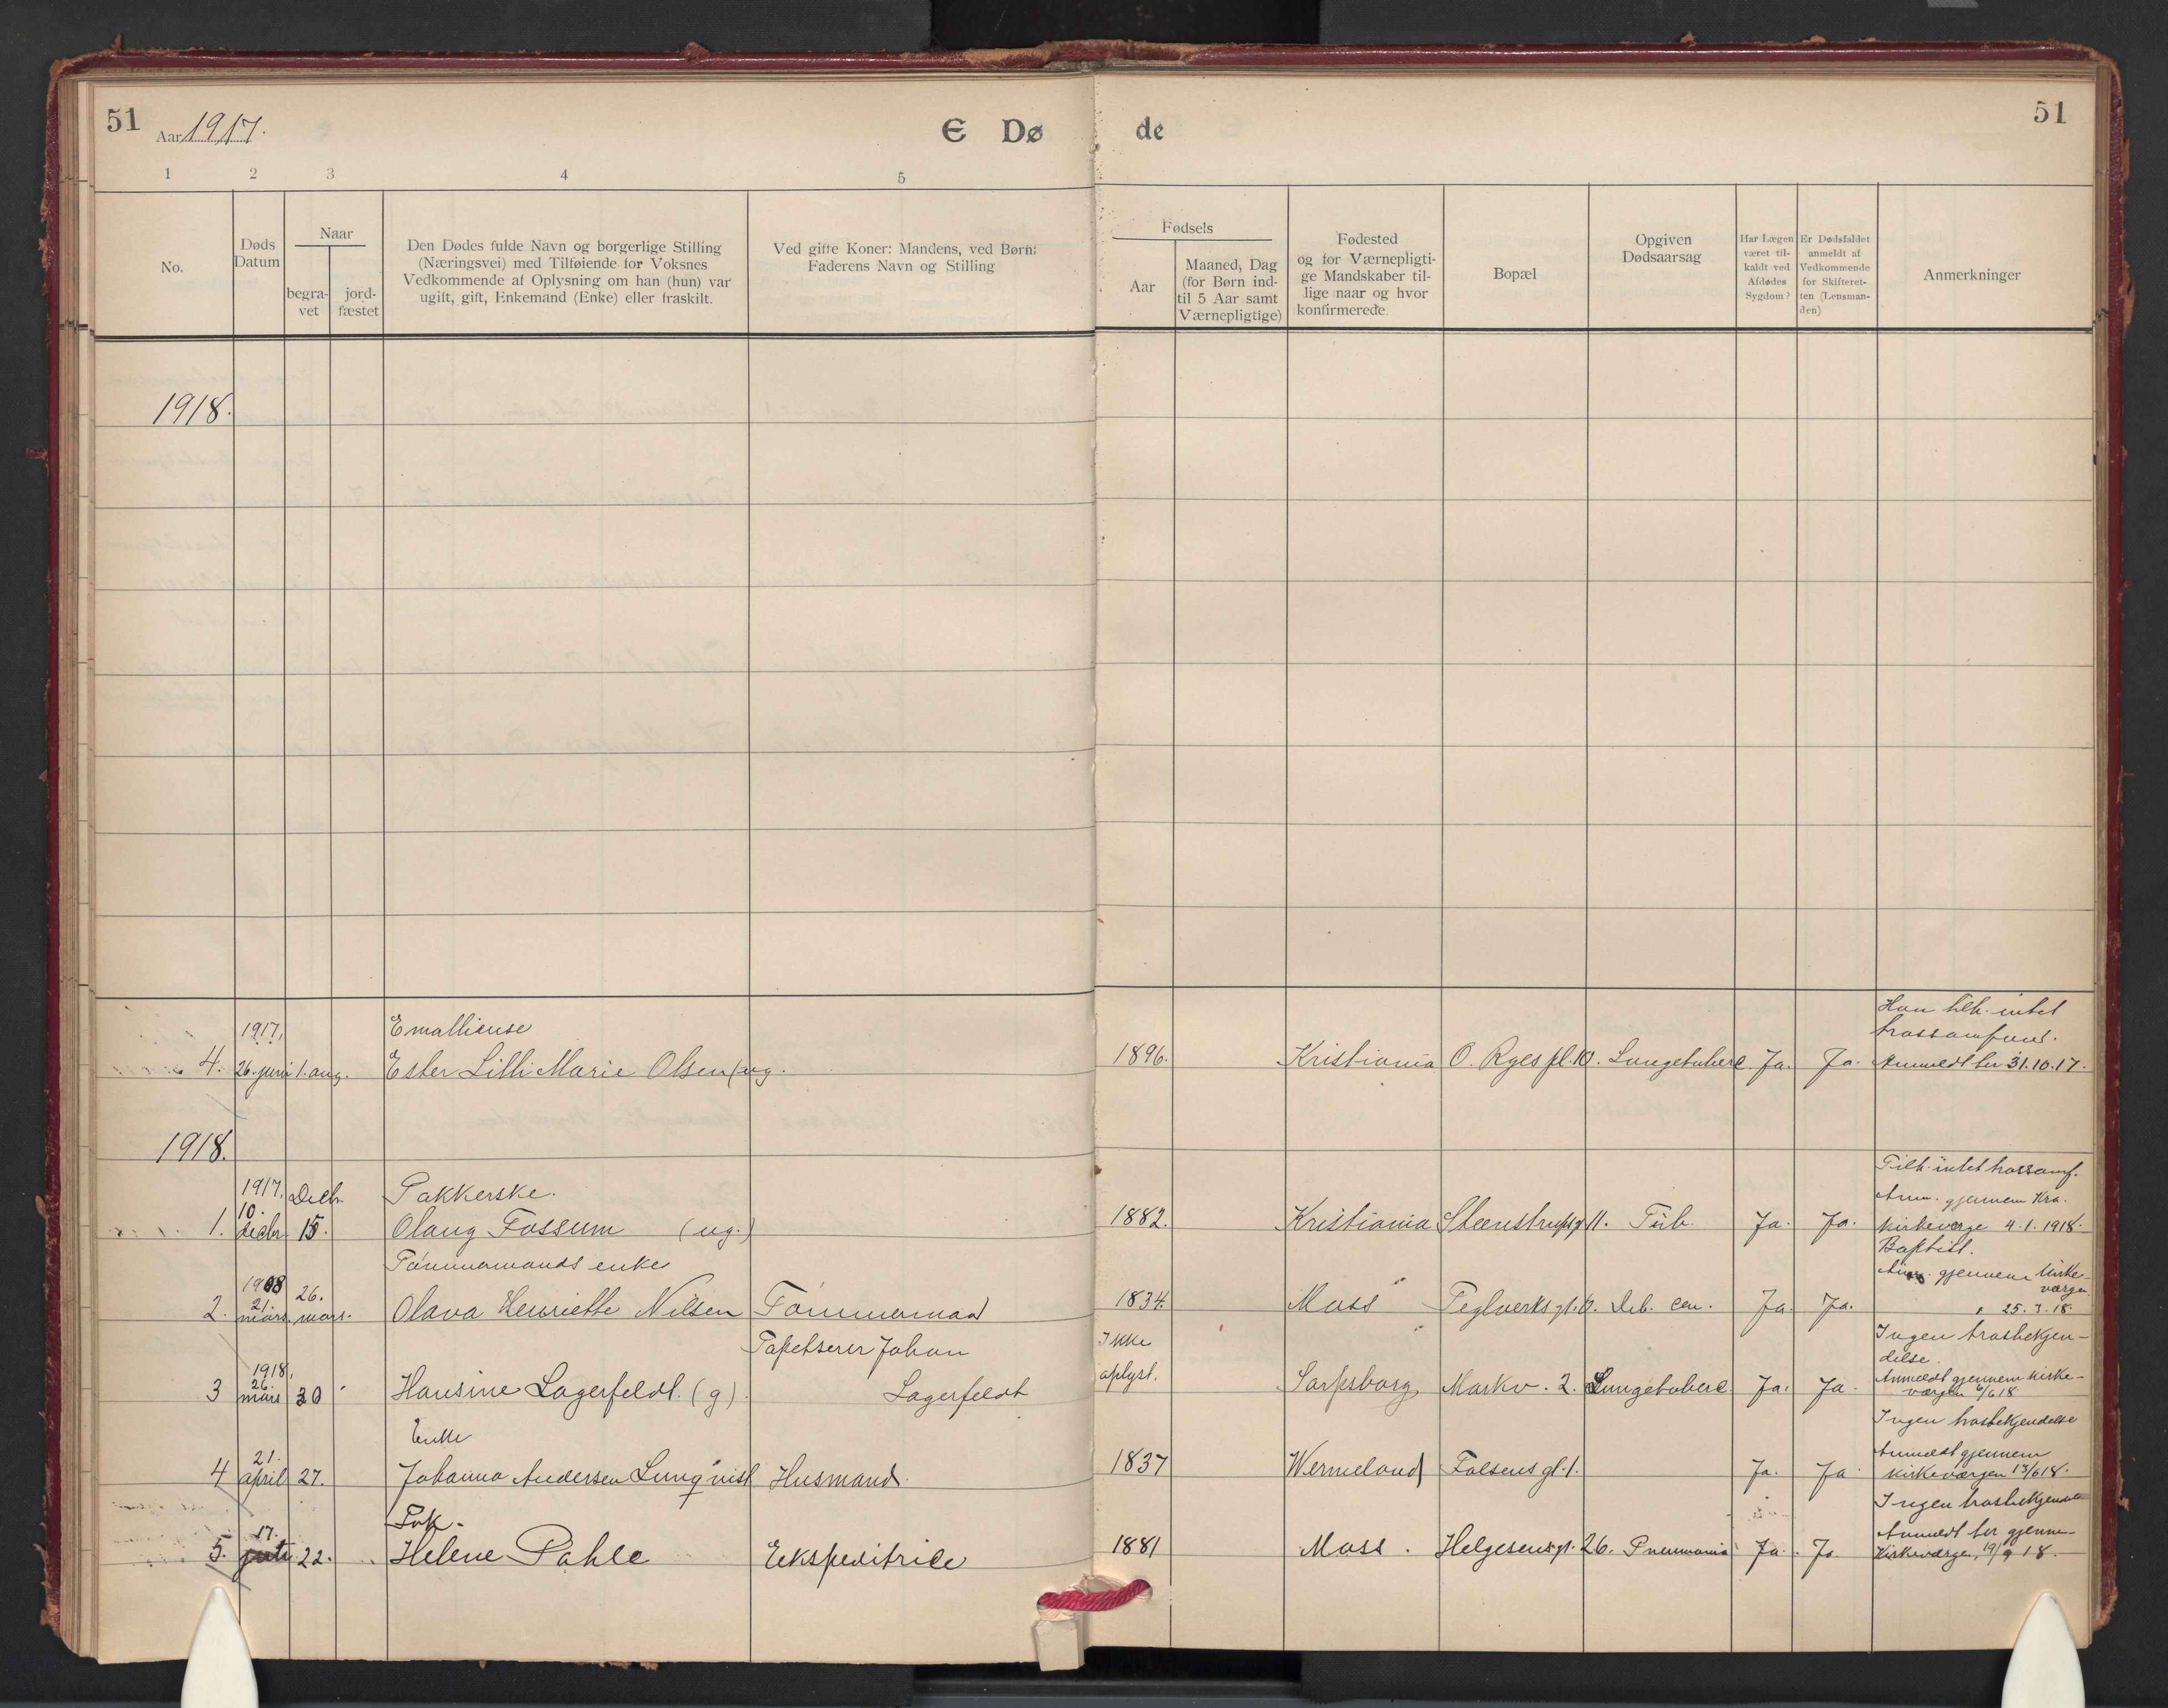 51 Aar 1917. E Dø de 51
1 2 3 4 5
No.
Døds Datum
Naar
begra-
vet
jord-
fæstet
Den Dødes fulde Navn og borgerlige Stilling
(Næringsvei) med Tilføiende for Voksnes
Vedkommende af Oplysning om han (hun) var
ugift, gift, Enkemand (Enke) eller fraskilt.
Ved gifte Koner: Mandens, ved Børn:
Faderens Navn og Stilling
Fødsels
Aar
Maaned, Dag
(for Børn ind-
til 5 Aar samt
Værnepligtige)
Fødested
og for Værnepligti-
ge Mandskaber til-
lige naar og hvor
konfirmerede.
Bopæl
Opgiven
Dødsaarsag
Har Lægen
været til-
kaldt ved
Afdødes
Sygdom?
Er Dødsfaldet
anmeldt af
Vedkommende
for Skifteret-
ten (Lensman-
den)
Anmerkninger
1918.
1917. Emallieuse Hun tilh. intet
trossamfund.
4. 26. juni 1. aug. Ester Lilli Marie Olsen (ug. 1896. Kristiania O. Ryes pl. 10. Lungetuberc. Ja. Ja. Anmeldt her 31.10.17.
1918.
Tilh. intet trossamf.
1917. Decbr. Pakkerske. Anm. gjennem Kra.
1. 10. decbr. 15. Olaug Fossum (ug.) 1882. Kristiania Steenstrupsg. 11. Tub. Ja. Ja. kirkeverge 4.1.1918.
Tømmermands enke Baptist.
Anm. gjennem kirke-
verge
2. 1918 21. mars. 26. mars. Olava Henriette Nilsen Tømmermand 1834. Moss Teglverksgt. 6. Deb. cen. Ja. Ja. " 25.3.18.
Tapetserer Johan Ikke Ingen trosbekjen-
delse.
3 1918, 26. mars 30 Hansine Lagerfeldt. (g). Lagerfeldt oplyst. Sarpsborg Markv. 2. Lungetuberc. Ja. Ja. Anmeldt gjennem kirke-
vergen 6/6 18
Enke Ingen trosbekjendelse
Anmeldt gjennem
4 21. april 27. Johanna Andersen Lunqvist Husmand. 1837 Wermeland Falsens gt. 1. Ja. Ja. kirkevergen 13/6 18.
Frk. Ingen trosbekjendelse
Anmeldt her gjennem
5. 17. juli 22. Helene Pahle Ekspeditrice 1881 Moss. Helgesensgt. 26. Pneumonia Ja. Ja. Kirkevergen, 19/9 18.